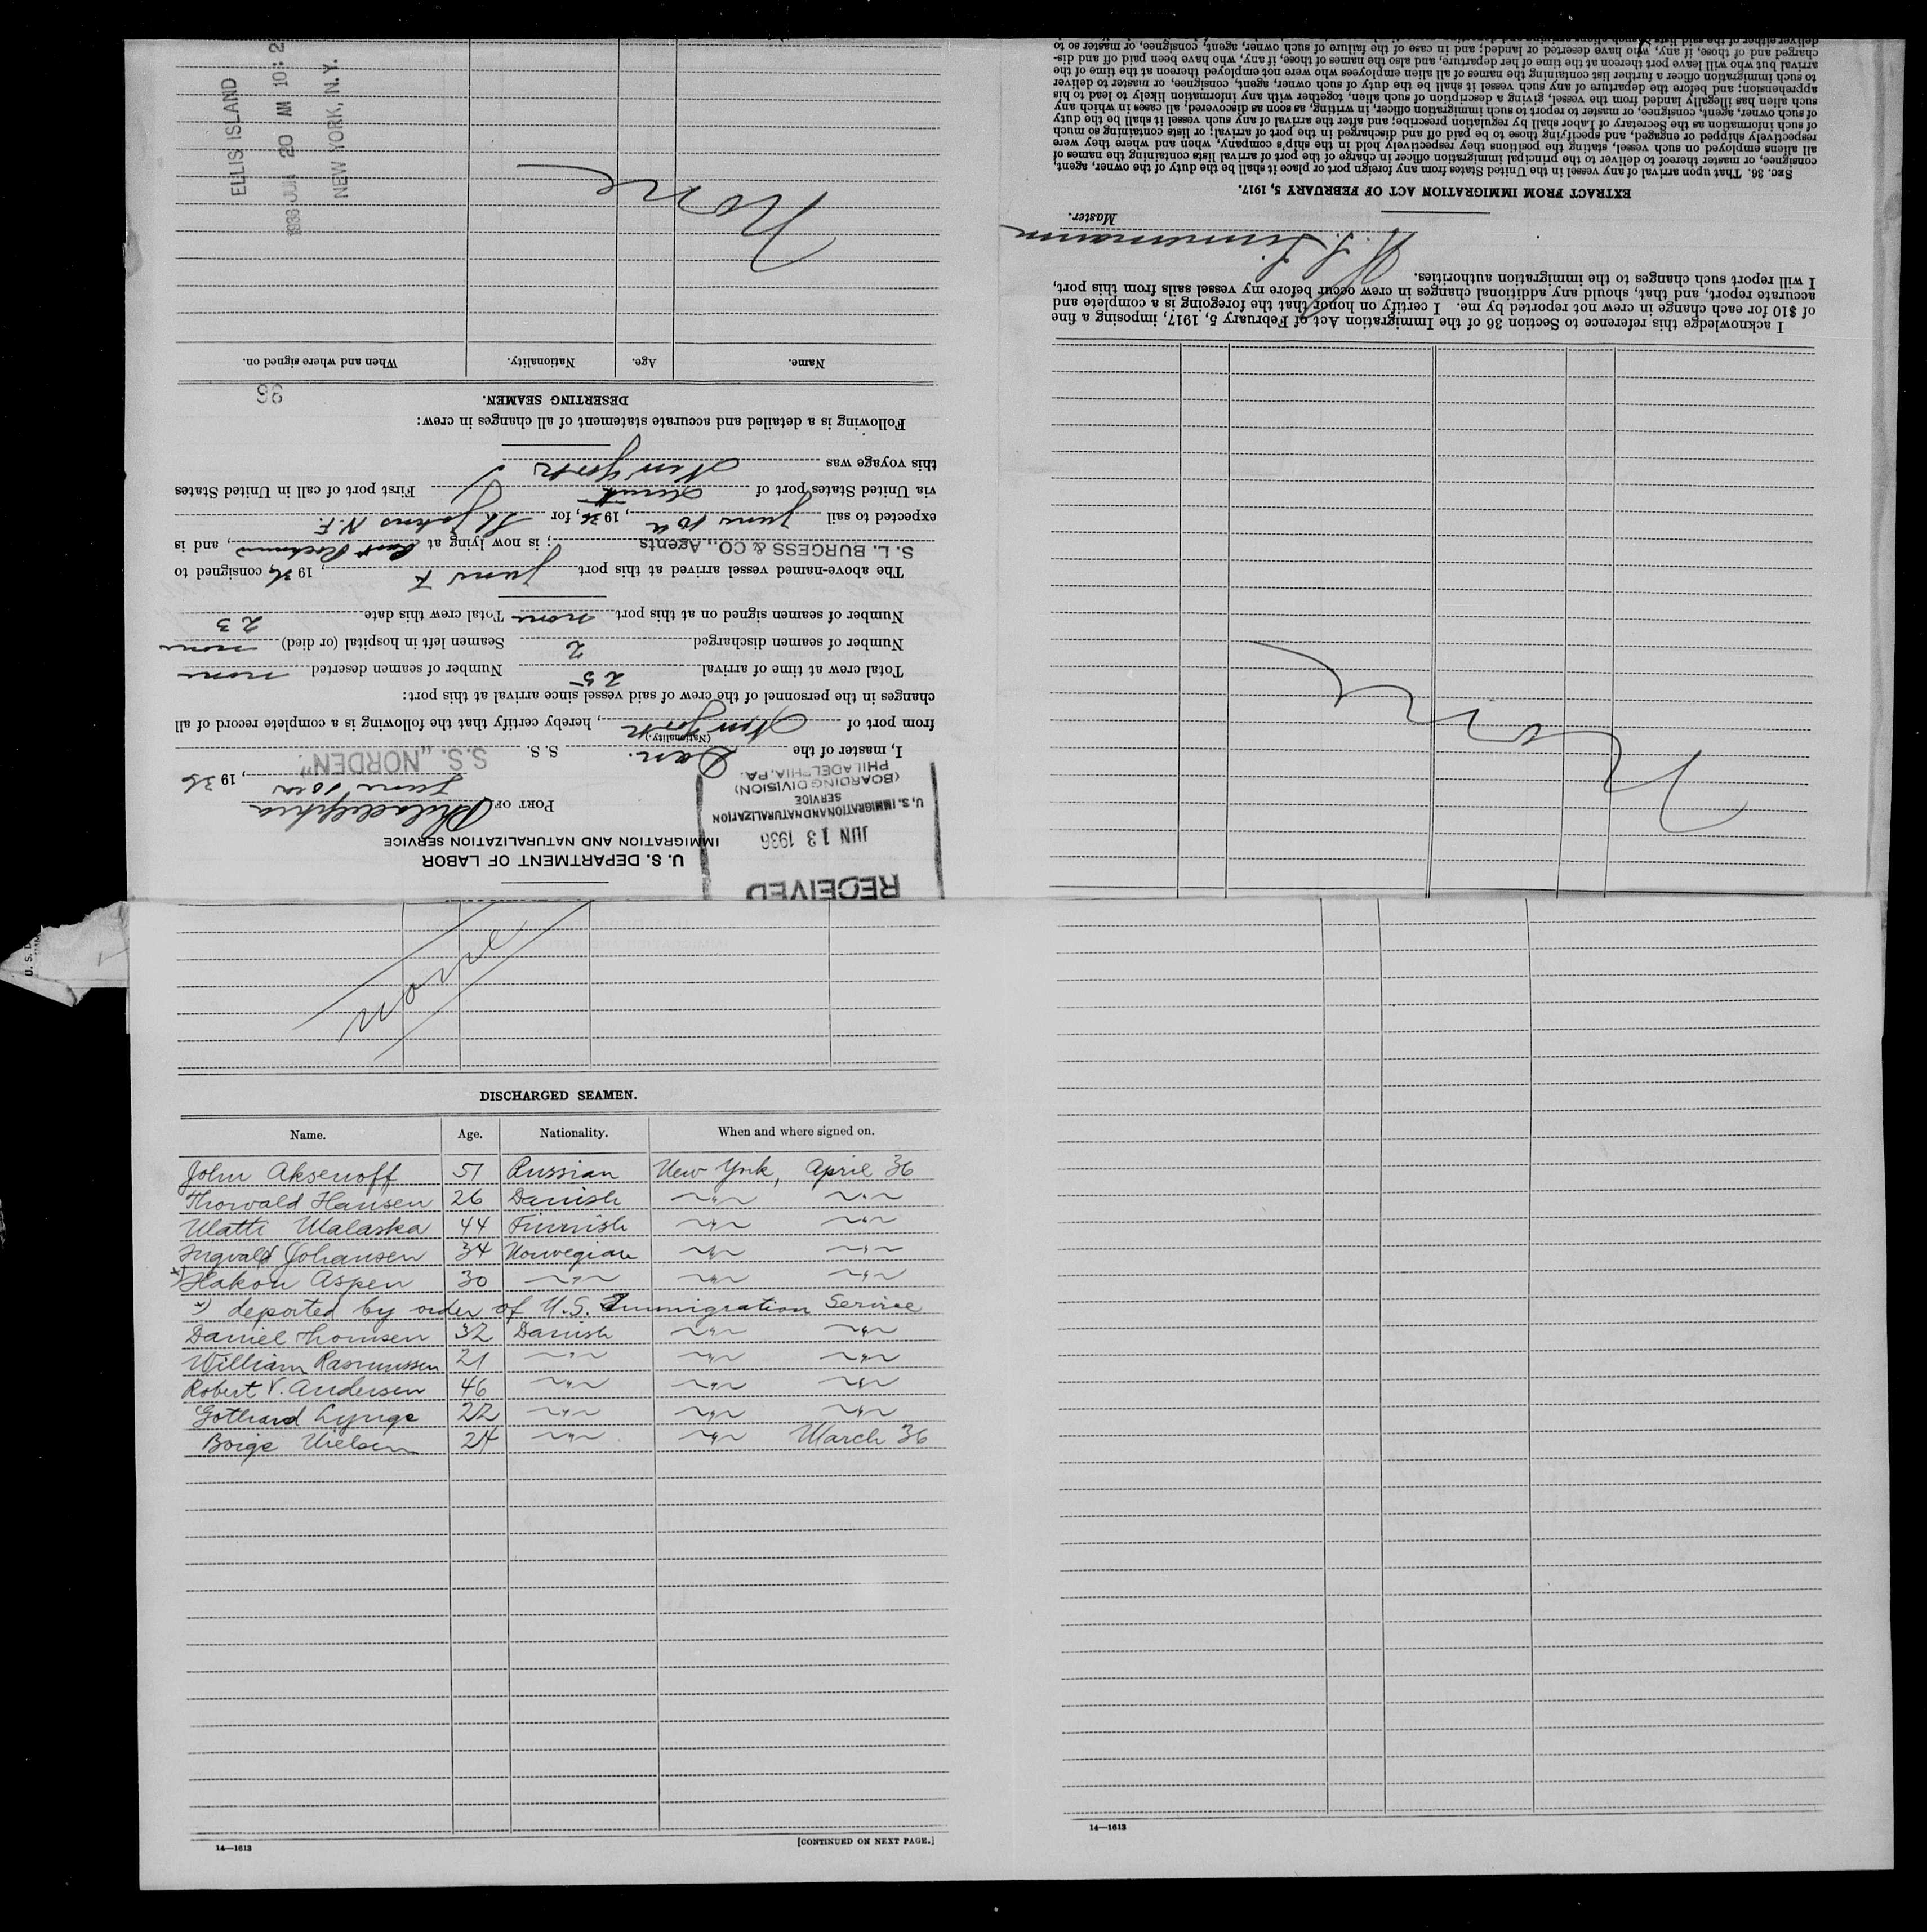 U. S. DEPARTMENT OF LABOR
IMMIGRATION AND NATURALIZATION SERVICE
RECEIVED
JUN 13 1936
U. S. IMMIGRATION AND NATURALIZATION
SERVICE
(BOARDING DIVISION)
PHILADELPHIA, PA.
PORT OF Philadelphia
June 10th, 1936
I, master of the Dan. S. S. S.S. „NORDEN"
(Nationality.)
from port of New York, hereby certify that the following is a complete record of all
changes in the personnel of the crew of said vessel since arrival at this port:
Total crew at time of arrival 25 Number of seamen deserted none
Number of seamen discharged 2 Seamen left in hospital (or died) none
Number of seamen signed on at this port none Total crew this date 23
The above-named vessel arrived at this port June 7, 1936, consigned to
S. L. BURGESS & CO., Agents; is now lying at Port Richmond, and is
expected to sail June 10th, 1936, for St Johns N.F.
via United States port of direct First port of call in United States
this voyage was New York
Following is a detailed and accurate statement of all changes in crew:
DESERTING SEAMEN.
36
Name. Age. Nationality. When and where signed on.
None
ELLIS ISLAND
1936 JUN 20 AM 10:2
NEW YORK, N.Y.
I acknowledge this reference to Section 36 of the Immigration Act of February 5, 1917, imposing a fine
of $10 for each change in crew not reported by me. I certify on honor that the foregoing is a complete and
accurate report, and that, should any additional changes in crew occur before my vessel sails from this port,
I will report such changes to the immigration authorities.
Master.
EXTRACT FROM IMMIGRATION ACT OF FEBRUARY 5, 1917.
SEC. 36. That upon arrival of any vessel in the United States from any foreign port or place it shall be the duty of the owner, agent,
consignee, or master thereof to deliver to the principal immigration officer in charge of the port of arrival lists containing the names of
all aliens employed on such vessel, stating the positions they respectively hold in the ship's company, when and where they were
respectively shipped or engaged, and specifying those to be paid off and discharged in the port of arrival; or lists containing so much
of such information as the Secretary of Labor shall by regulation prescribe; and after the arrival of any such vessel it shall be the duty
of such owner, agent, consignee, or master to report to such immigration officer, in writing, as soon as discovered, all cases in which any
such alien has illegally landed from the vessel, giving a description of such alien, together with any information likely to lead to his
apprehension; and before the departure of any such vessel it shall be the duty of such owner, agent, consignee, or master to deliver
to such immigration officer a further list containing the names of all alien employees who were not employed thereon at the time of the
arrival but who will leave port thereon at the time of her departure, and also the names of those, if any, who have been paid off and dis-
charged and of those, if any, who have deserted or landed; and in case of the failure of such owner, agent, consignee, or master so to
None
none
DISCHARGED SEAMEN.
Name. Age. Nationality. When and where signed on.
John Aksenoff 51 Russian New York, April 36
Thorvald Hansen 26 Danish —"— —"—
Matti Malaska 44 Finnish —"— —"—
Ingvald Johansen 34 Norwegian —"— —"—
x) Hakon Aspen 30 —"— —"— —"—
x) deported by order of U.S. Immigration Service
Daniel Thomsen 32 Danish —"— —"—
William Rasmussen 21 —"— —"— —"—
Robert V. Andersen 46 —"— —"— —"—
Gothard Lynge 22 —"— —"— —"—
Borge Nielsen 24 —"— —"— March 36
14—1613
[CONTINUED ON NEXT PAGE.]
14—1613